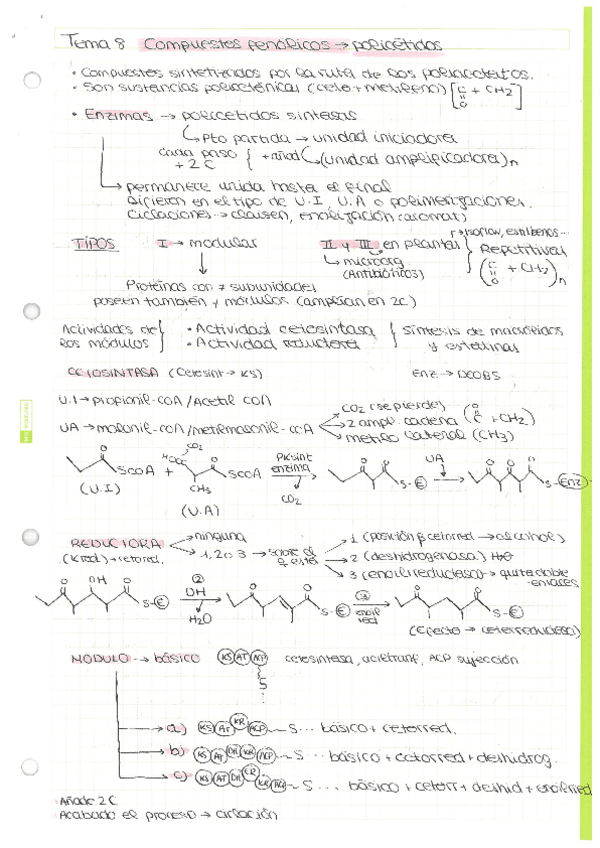 Tema 8 Compuestos fenólicos → policétidos
• Compuestos sintetizados por la ruta de los poliacetatos.
• Son sustancias policetónicas (ceto + metileno) [C=O + CH2]
• Enzimas → policetidos sintasas
Pto partida → unidad iniciadora
cada paso + 2 C { + añad (unidad amplificadora)n
permanece unida hasta el final
Difieren en el tipo de U.I, U.A o polimerizaciones.
Ciclaciones → claisen, enolización (aromat)
TIPOS I → modular II y III en plantas
microorg (Antibióticos)
Repetitivas (C=O + CH2)n
Proteínas con ≠ subunidades
poseen también y módulos (amplían en 2C)
Actividades de los módulos
• Actividad cetosintasa
• Actividad reductora
síntesis de macrólidos y estatinas
CETOSINTASA (Cetosint → KS)
U.I → propionil-CoA / Acetil CoA
UA → malonil-CoA / metilmalonil-CoA
CO2 (se pierde)
2 ampl. cadena (C=O + CH2)
metilo lateral (CH3)
O SCoA + HOOC CO2 O SCoA PKsint enzima CO2 O O S-E UA O O O S-Enz
CH3
(U.I)
(U.A)
REDUCTORA
ninguna
1, 2 o 3
1 (posición β cetorred → alcohol)
2 (deshidrogenasa) H2O
3 (enoilreductasa) → quita doble enlaces
O OH O O S-E ② DH H2O O O O S-E ③ enoil red O O O S-E
(Efecto → ceterreductasa)
MODULO → básico KS AT ACP cetosintasa, aciltranf, ACP sujección
S
a) KS AT KR ACP S... básico + cetorred.
b) KS AT DH KR ACP S... básico + cetorred + deshidrog.
c) KS AT DH ER KR ACP S... básico + cetorr + deshid + enoilred
Añade 2 C
Acabado el proceso → ciclación